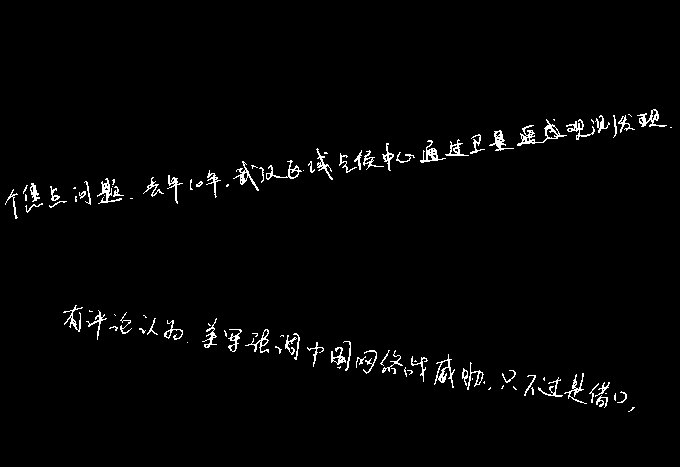 个焦点问题.去年10年,武汉区域气候中心通过卫星遥感观测发现.
有评论认为.美军强调中国网络战威胁,只不过是借口,